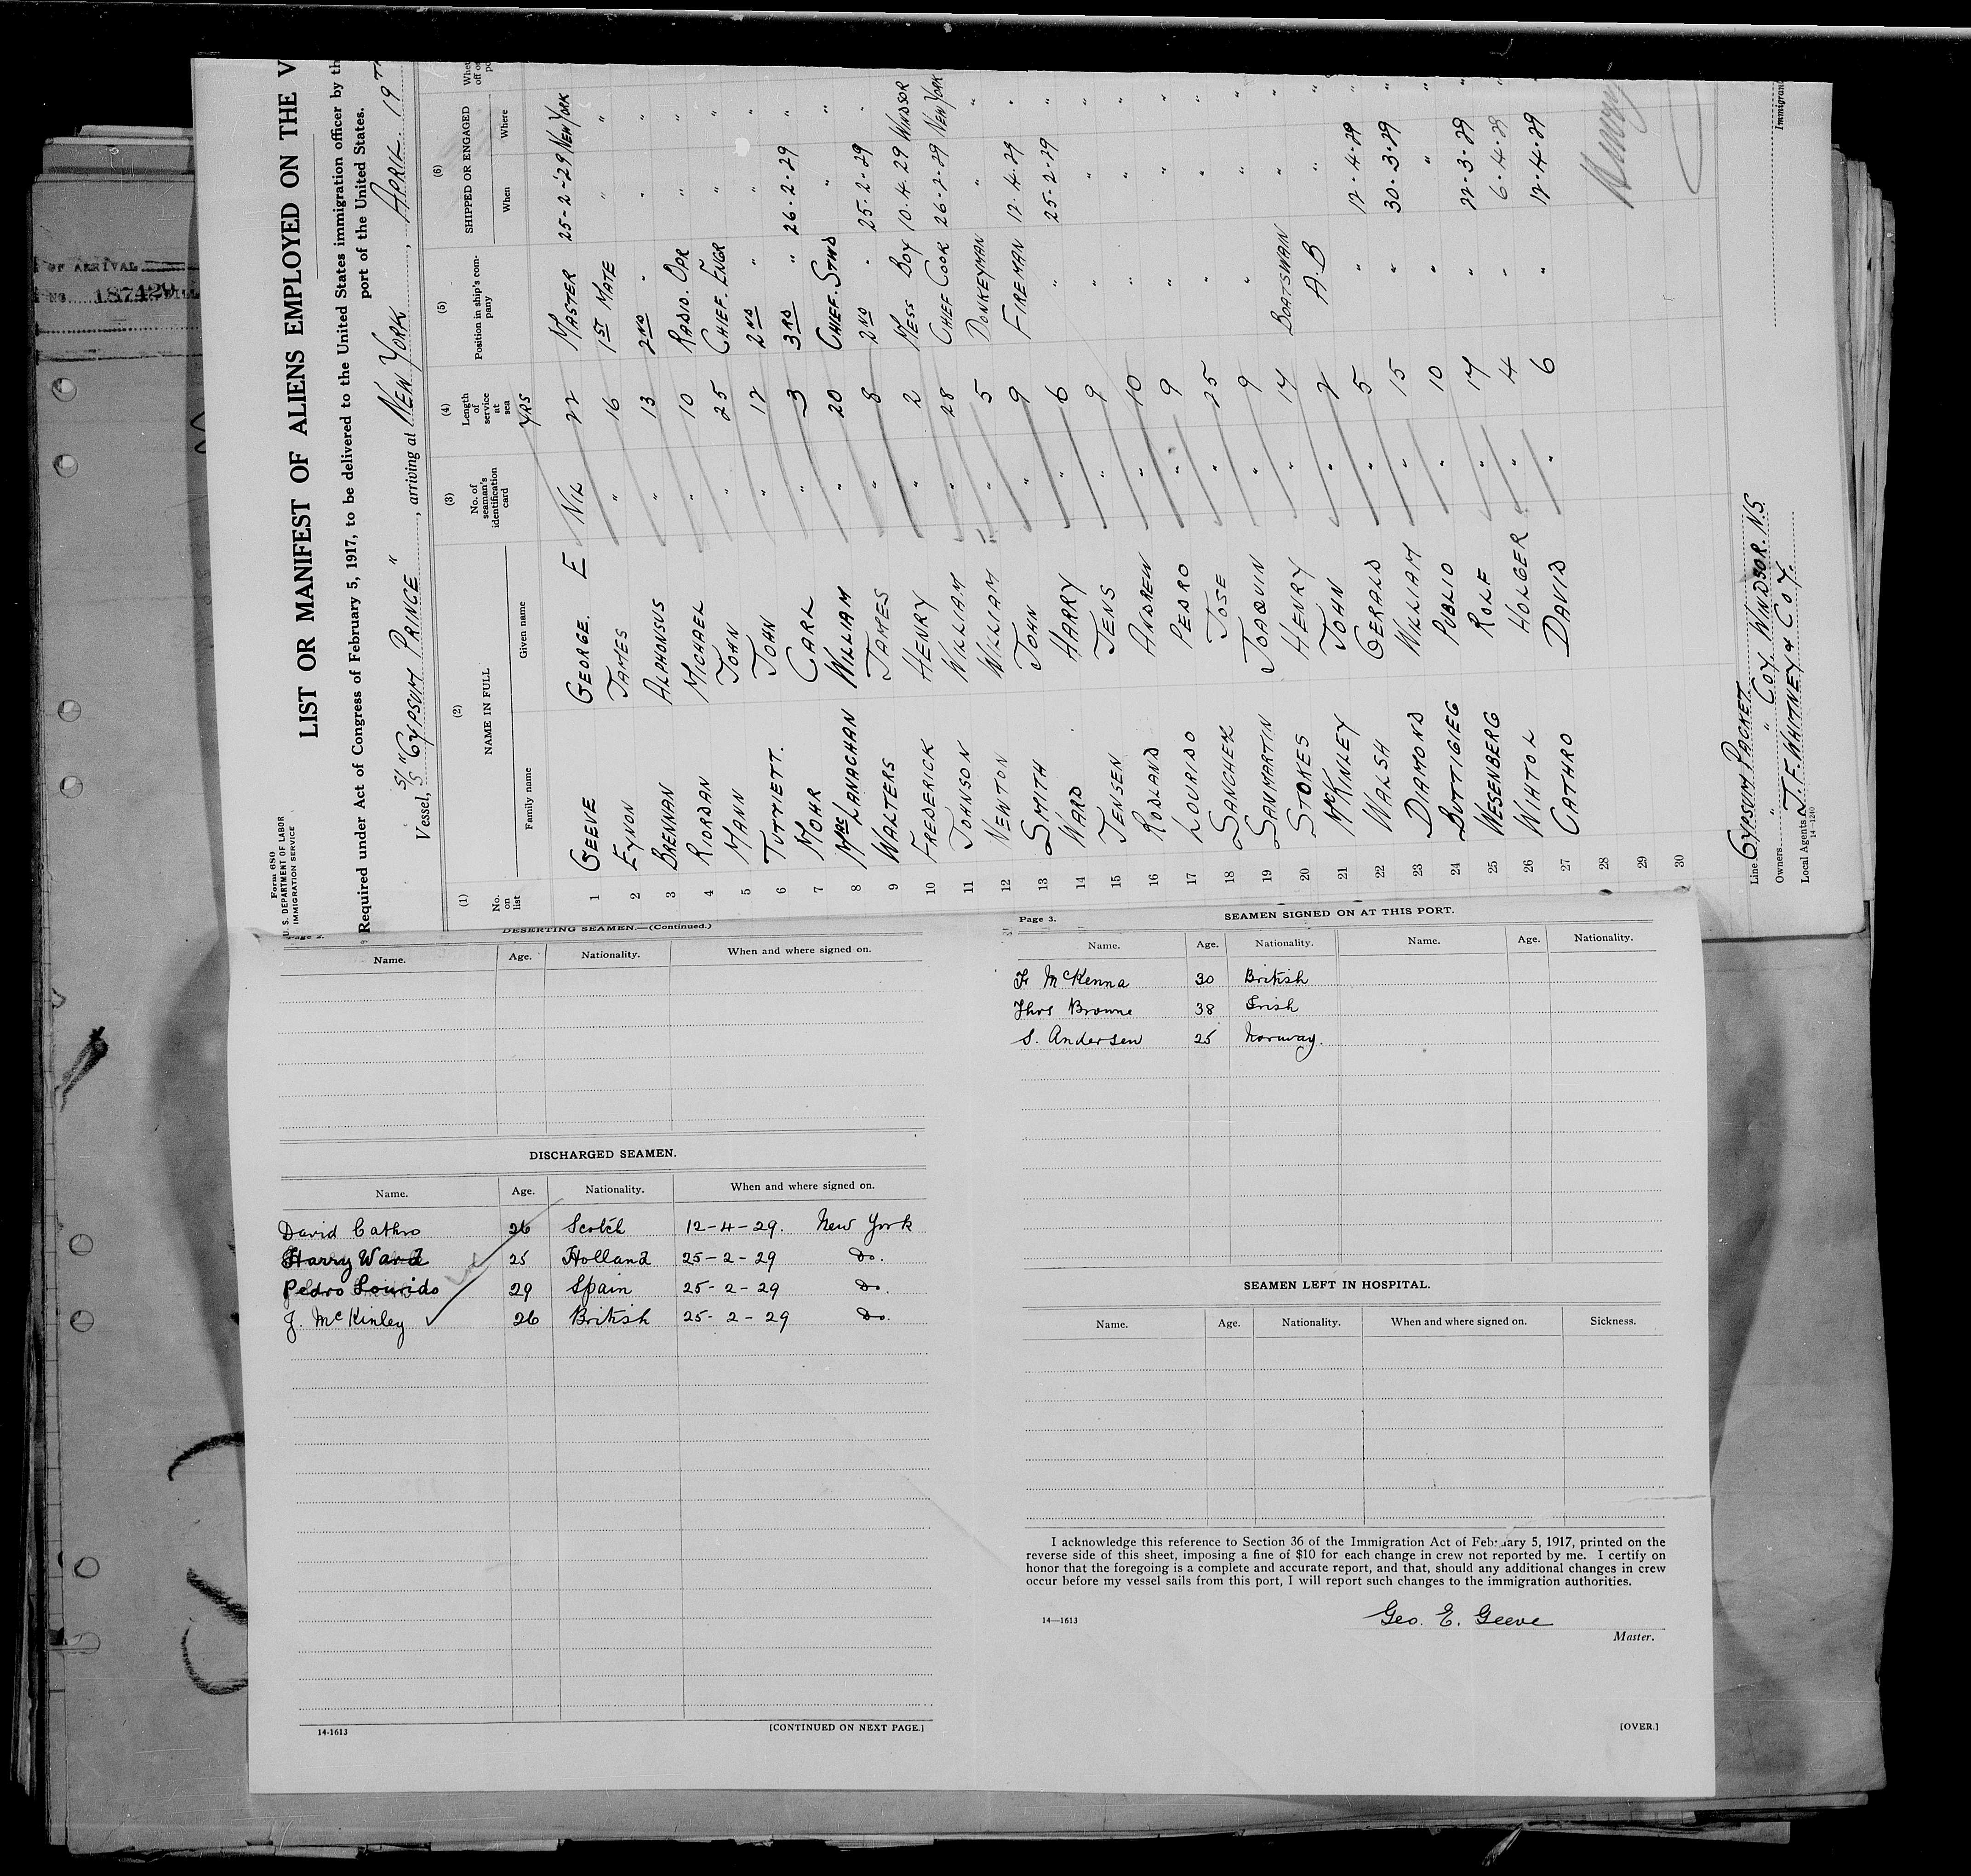 OF ARRIVAL
NO. 187429
Form 680
U. S. DEPARTMENT OF LABOR
IMMIGRATION SERVICE
LIST OR MANIFEST OF ALIENS EMPLOYED ON THE V
Required under Act of Congress of February 5, 1917, to be delivered to the United States immigration officer by th
port of the United States.
Vessel, SS "GYPSUM PRINCE", arriving at NEW YORK, APRIL 19TH
(1) (2) (3) (4) (5) (6)
No. on list NAME IN FULL No. of seaman's identification card Length of service at sea Position in ship's company SHIPPED OR ENGAGED
Family name Given name YRS When Where
1 GEEVE GEORGE. E NIL 22 MASTER 25-2-29 NEW YORK
2 EYNON JAMES " 16 1ST MATE " "
3 BRENNAN ALPHONSUS " 13 2ND " " "
4 RIORDAN MICHAEL " 10 RADIO. OPR " "
5 MANN JOHN " 25 CHIEF. ENGR " "
6 TUTTIETT. JOHN " 12 2ND " " "
7 MOHR CARL " 3 3RD " 26-2-29 "
8 MACLANACHAN WILLIAM " 20 CHIEF. STWD " "
9 WALTERS JAMES " 8 2ND " 25-2-29 "
10 FREDERICK HENRY " 2 MESS BOY 10.4.29 WINDSOR
11 JOHNSON WILLIAM " 28 CHIEF COOK 26-2-29 NEW YORK
12 NEWTON WILLIAM " 5 DONKEYMAN " "
13 SMITH JOHN " 9 FIREMAN 12.4.29 "
14 WARD HARRY " 6 " 25-2-29 "
15 JENSEN JENS " 9 " " "
16 RODLAND ANDREW " 10 " " "
17 LOURIDO PEDRO " 9 " " "
18 SANCHEZ JOSE " 25 " " "
19 SANMARTIN JOAQUIN " 9 " " "
20 STOKES HENRY " 14 BOATSWAIN " "
21 McKINLEY JOHN " 2 A.B " "
22 WALSH GERALD " 5 " 12.4.29 "
23 DIAMOND WILLIAM " 15 " 30.3.29 "
24 BUTTIGIEG PUBLIO " 10 " " "
25 WESENBERG ROLF " 14 " 22-3-29 "
26 WIHTOL HOLGER " 4 " 6-4-29 "
27 CATHRO DAVID " 6 " 12.4.29 "
28
29
30
Line GYPSUM PACKET
Owners " " COY WINDSOR. N.S.
Local Agents J. F. WHITNEY & COY.
14-1240
Immigran
DESERTING SEAMEN.—(Continued.)
Name. Age. Nationality. When and where signed on.
DISCHARGED SEAMEN.
Name. Age. Nationality. When and where signed on.
David Cathro 26 Scotch 12-4-29. New York
Harry Ward 25 Holland 25-2-29 Do.
Pedro Lourido 29 Spain 25-2-29 Do.
J. McKinley 26 British 25-2-29 Do.
14-1613 [CONTINUED ON NEXT PAGE.]
Page 3. SEAMEN SIGNED ON AT THIS PORT.
Name. Age. Nationality. Name. Age. Nationality.
F McKenna 30 British
Thos Browne 38 Irish
S. Andersen 25 Norway.
SEAMEN LEFT IN HOSPITAL.
Name. Age. Nationality. When and where signed on. Sickness.
I acknowledge this reference to Section 36 of the Immigration Act of February 5, 1917, printed on the
reverse side of this sheet, imposing a fine of $10 for each change in crew not reported by me. I certify on
honor that the foregoing is a complete and accurate report, and that, should any additional changes in crew
occur before my vessel sails from this port, I will report such changes to the immigration authorities.
14—1613 Geo. E. Geeve
Master.
[OVER.]